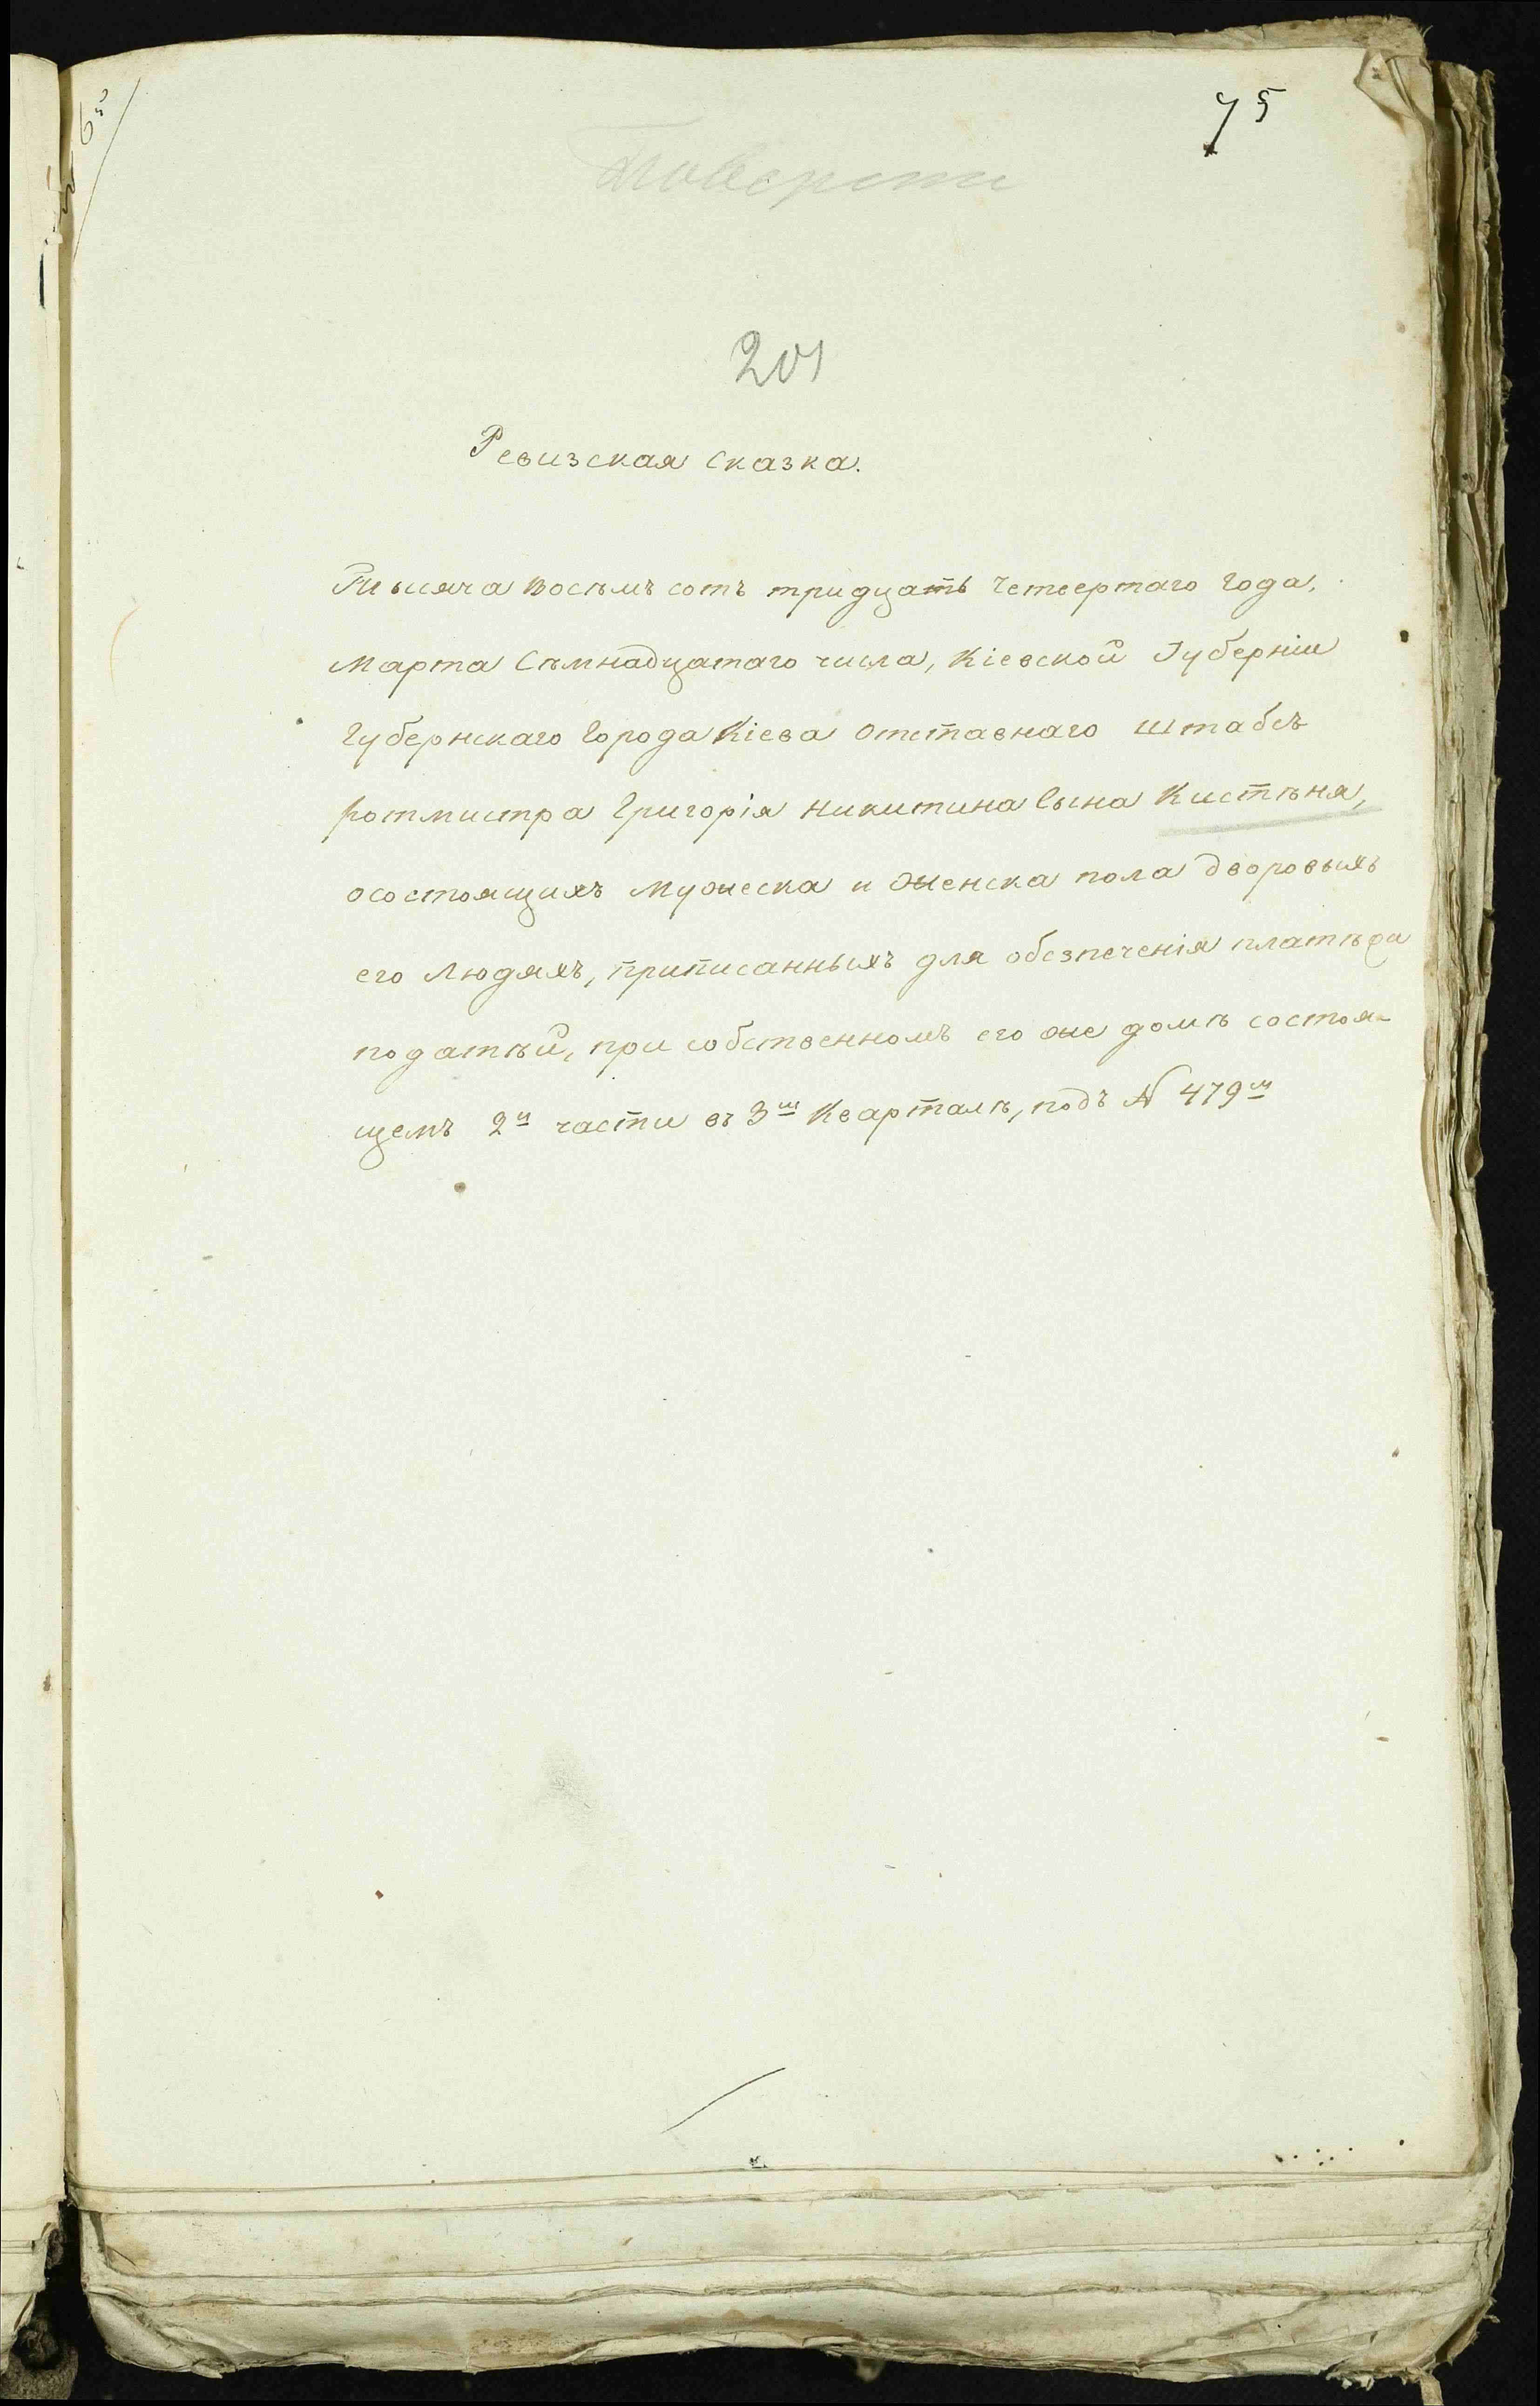 75
201
Ревизская сказка.
Тысяча восѣмъ сотъ тридцать четвертаго года,
Марта Сѣмнадцатаго числа, Кіевской Губерніи
Губернскаго Города Кіева отставнаго штабсъ
ротмистра Григорія Никитина сына Кистѣня,
осостоящихъ мужеска и женска пола дворовыхъ
его людяхъ, приписанныхъ для обезпеченія платѣжа
податѣй, при собственномъ его же домѣ состоя-
щемъ 2й части въ 3м Кварталѣ, подъ № 479м